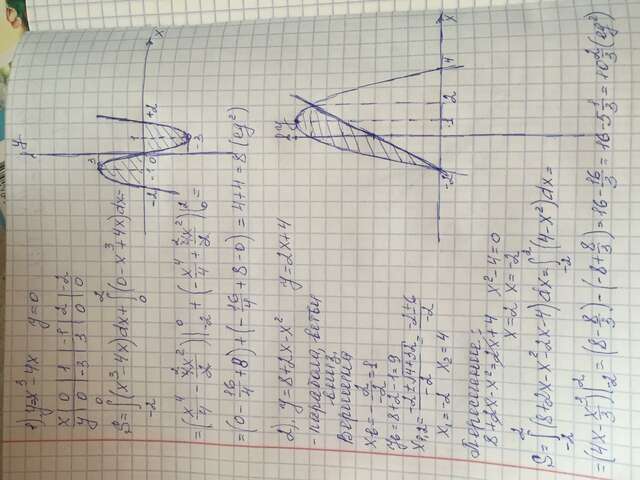 1) y=x³-4x   y=0
x | 0 | 1 | -1 | 2 | -2
y | 0 | -3 | 3 | 0 | 0
S=∫₋₂⁰(x³-4x)dx+∫₀²(0-x³+4x)dx=
=(x⁴/4-4x²/2)|₋₂⁰+(-x⁴/4+4x²/2)|₀²=
=(0-16/4+8)+(-16/4+8-0)=4+4=8(ед²)
y
3
-2 -1 0 1 +2 x
-3
2) y=8+2x-x²   y=2x+4
- парабола, ветви
вниз
Вершина
xв=-2/-2=1
yв=8+2-1=9
x₁,₂=-2±√4+32/-2=-2±6/-2
x₁=-2   x₂=4
y
-2 1 2 4 x
8+2x-x²=2x+4   x²-4=0
x=2   x=-2
S=∫₋₂²(8+2x-x²-2x-4)dx=∫₋₂²(4-x²)dx=
=(4x-x³/3)|₋₂²=(8-8/3)-(-8+8/3)=16-16/3=16-5 1/3=10 2/3(ед²)